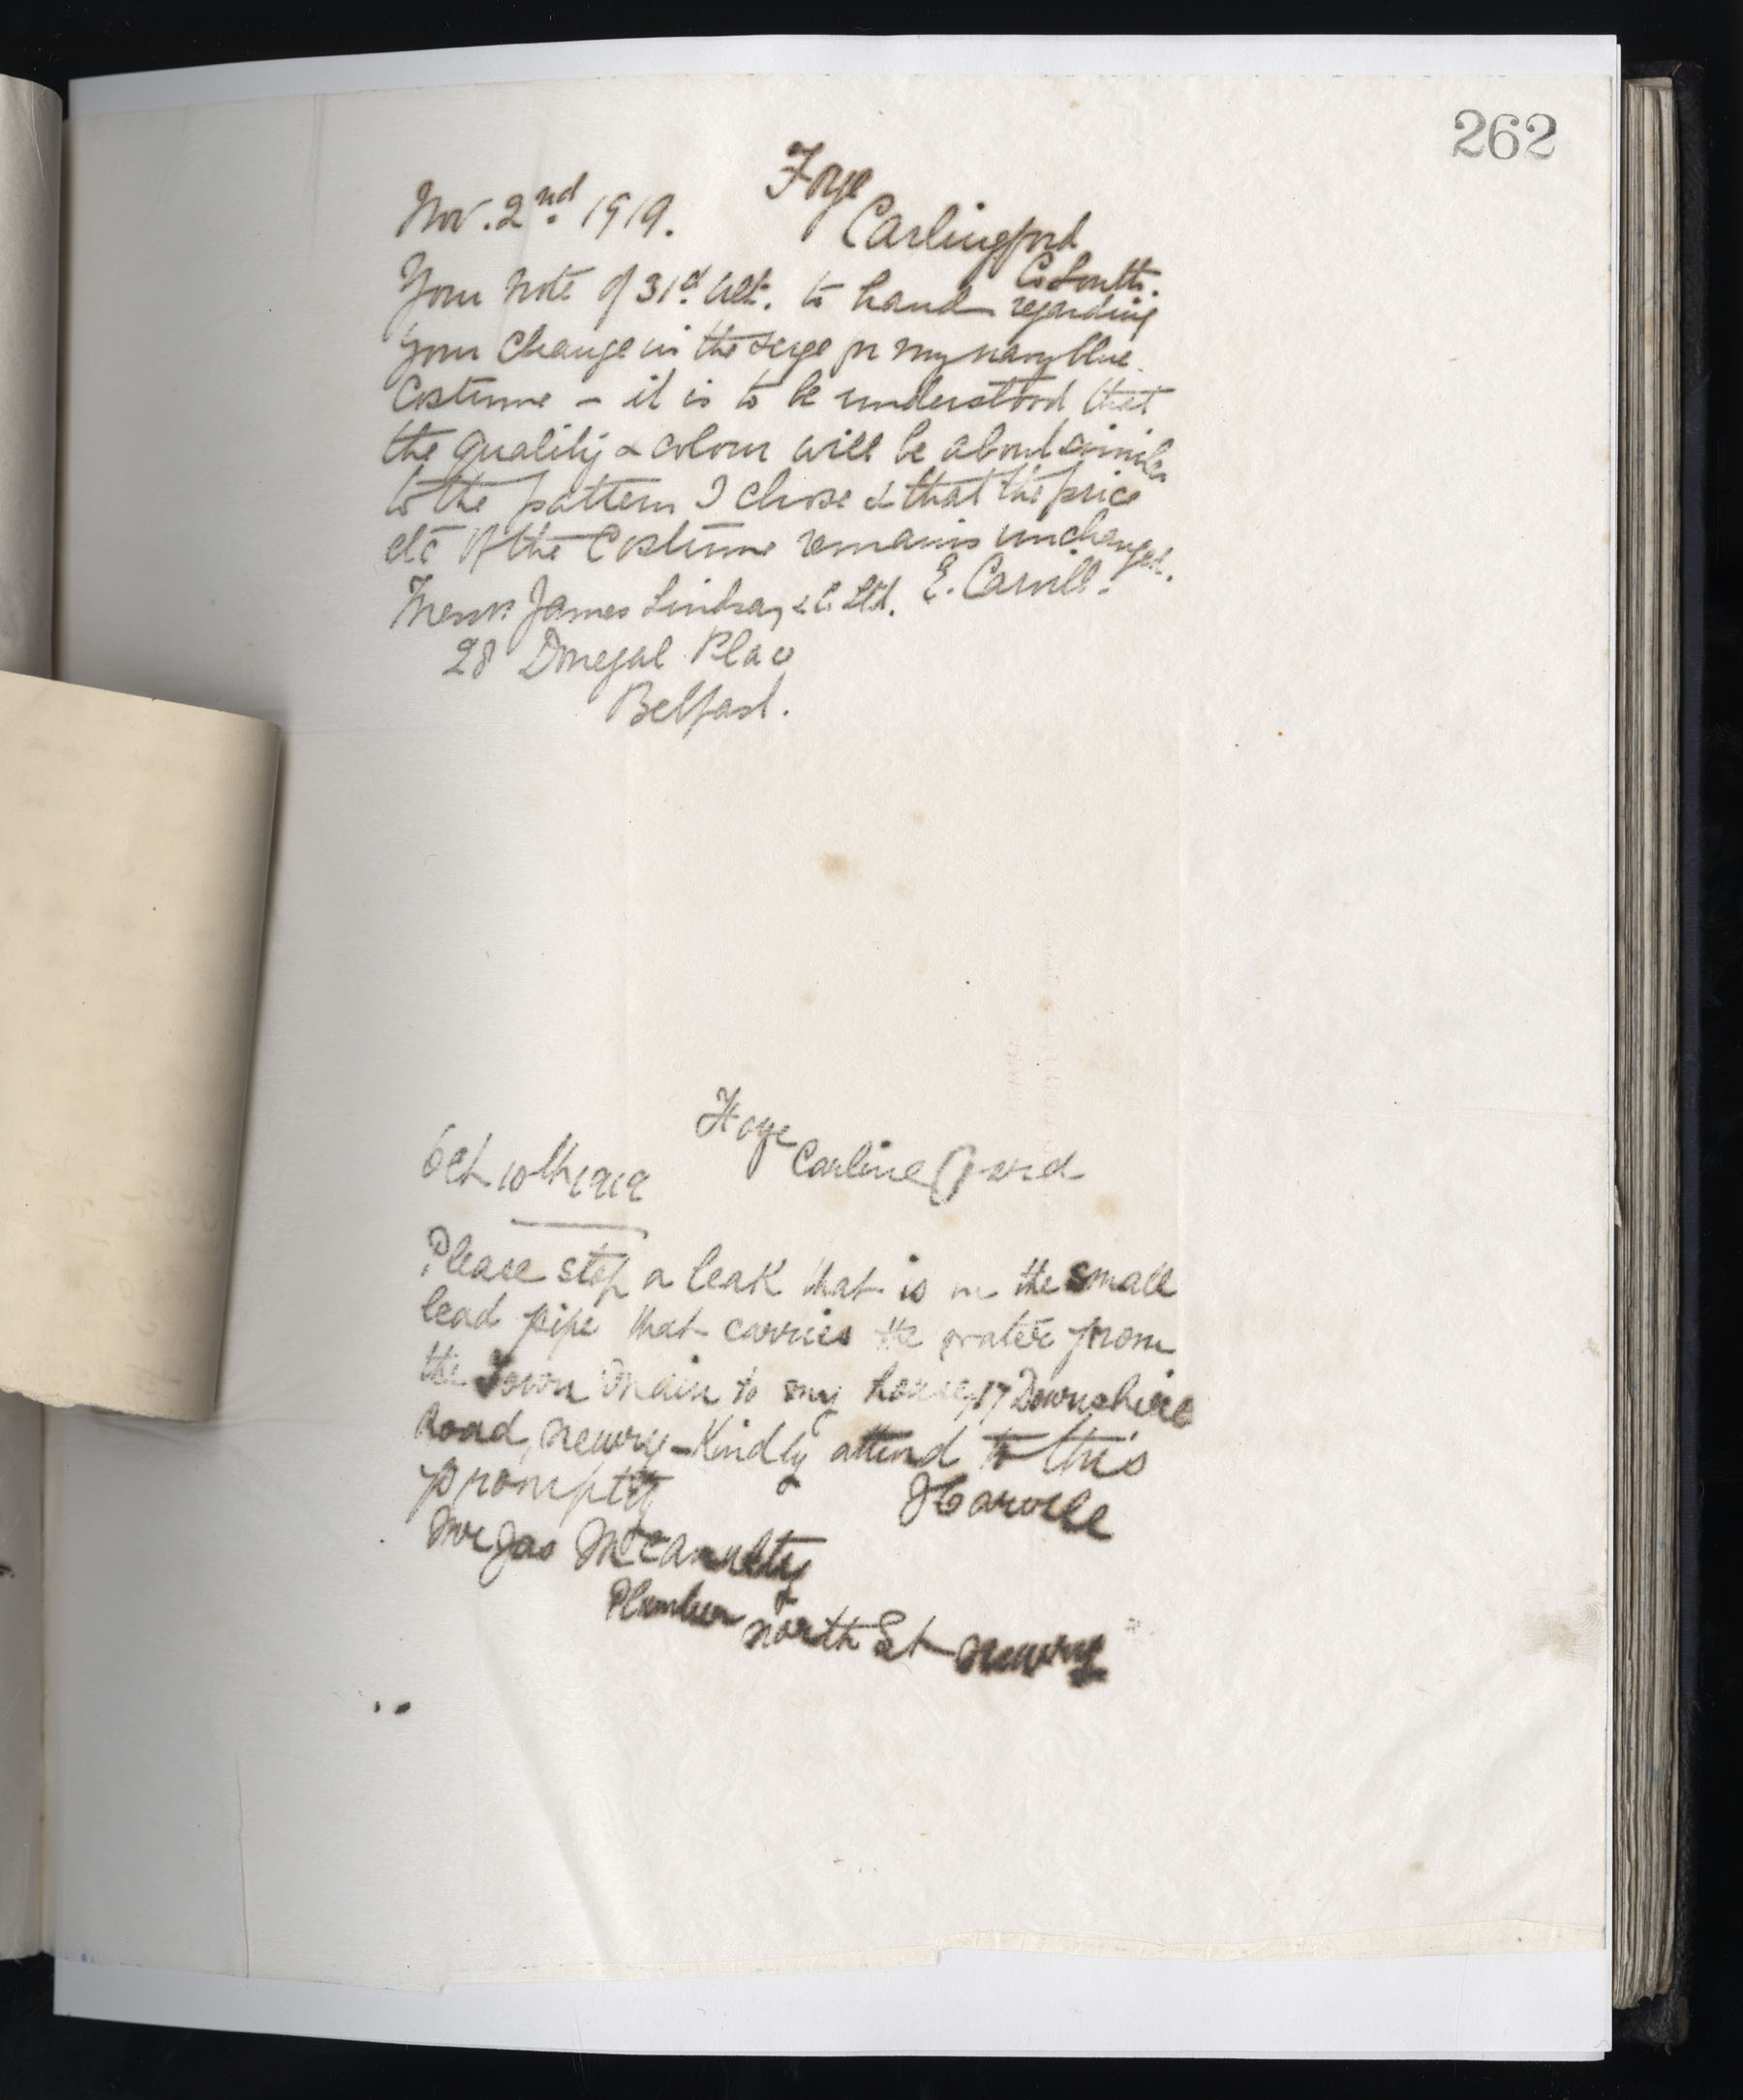 262
Foye
Nov. 2nd 1919.
Carlingford
Co Louth.
Your note of 31st ult. to hand regarding
your change in the serge for my navy blue
Costume - it is to be understood that
the quality & colour will be about similar
to the pattern I chose & that the price
etc of the Costume remains unchanged.
E. Carvill.
Messrs James Lindsay & Co Ltd.
28 Donegal Place
Belfast.
Foye
Carlingford
Oct 10th 1919
Please stop a leak that is in the small
lead pipe that carries the water from
the Town Main to my house, 17 Downshire
Road, Newry - Kindly attend to this
promptly
J Carvill
Mr Jas McAnulty
Plumber
North St Newry